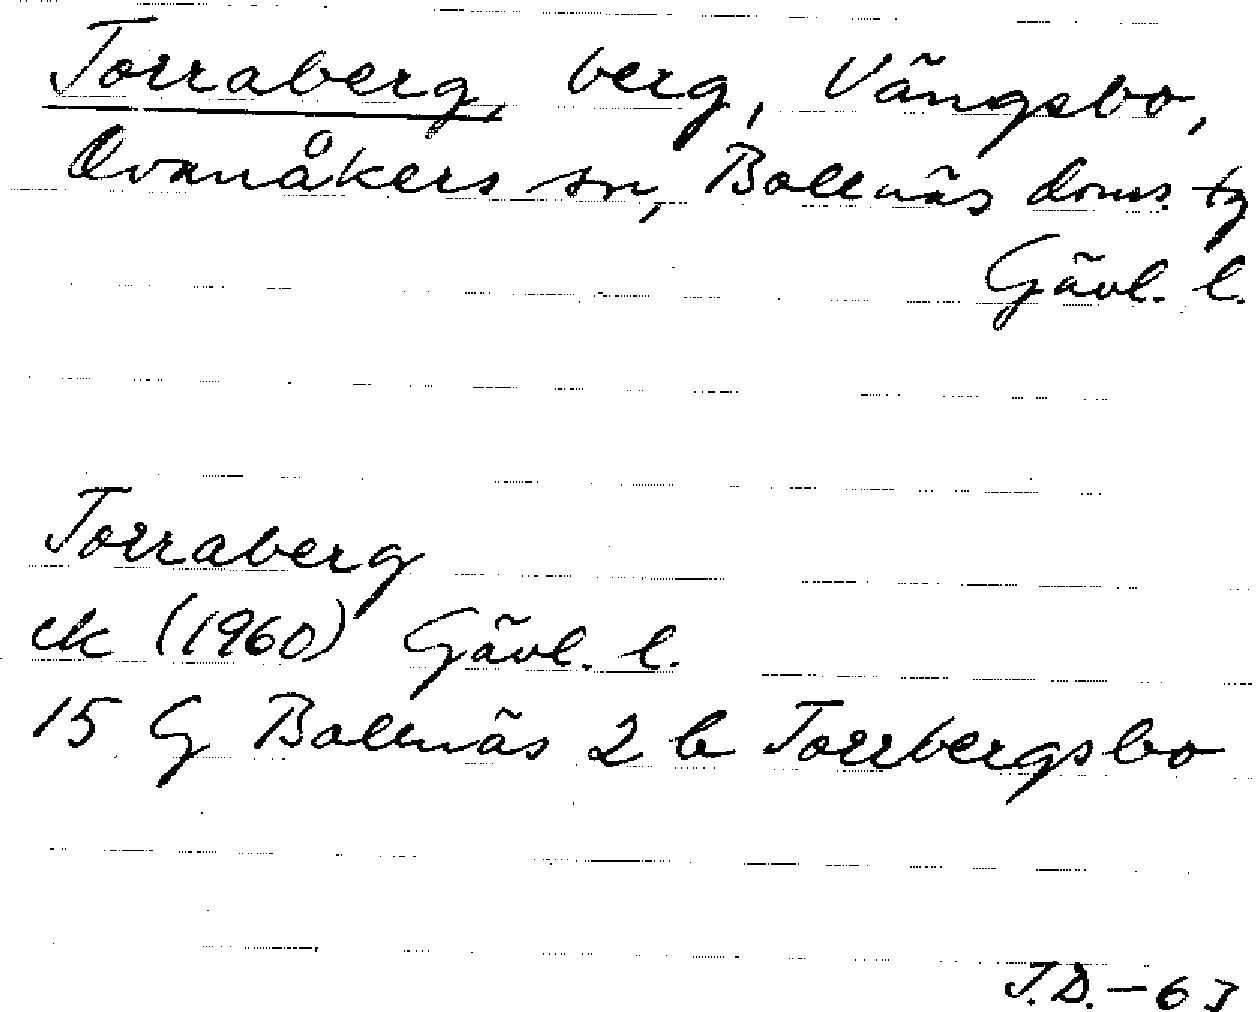 Torraberg, berg, Vängsbo,
Ovanåkers sn, Bollnäs doms. tg
Gävl. l.
Torraberg
ek (1960) Gävl. l.
15 G Bollnäs 2 b Torrbergsbo
J.D.-63